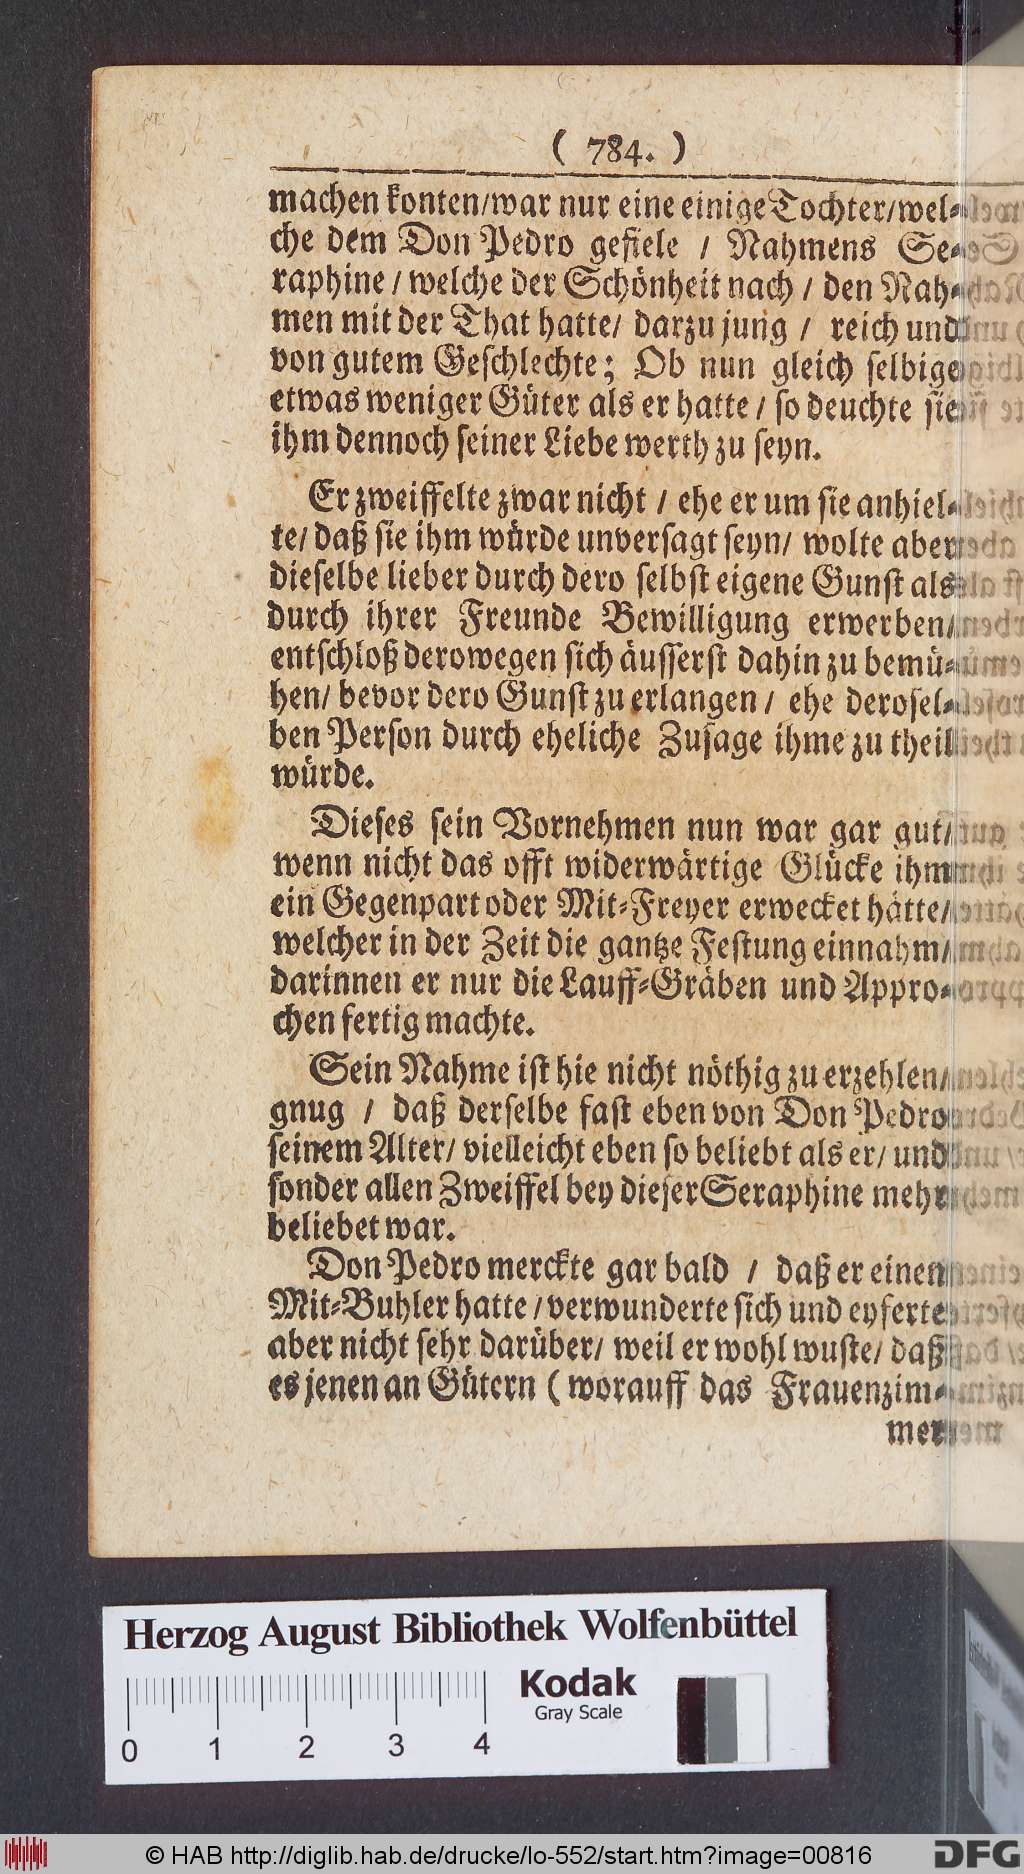 ( 784. )
machen konten/war nur eine einige Tochter/wel-
che dem Don Pedro gefiele / Nahmens Se-
raphine / welche der Schönheit nach / den Nah-
men mit der That hatte/ darzu jung / reich und
von gutem Geschlechte; Ob nun gleich selbige
etwas weniger Güter als er hatte / so deuchte sie
ihm dennoch seiner Liebe werth zu seyn.
Er zweiffelte zwar nicht / ehe er um sie anhiel-
te/ daß sie ihm würde unversagt seyn/ wolte aber
dieselbe lieber durch dero selbst eigene Gunst als
durch ihrer Freunde Bewilligung erwerben/
entschloß derowegen sich äusserst dahin zu bemü-
hen/ bevor dero Gunst zu erlangen / ehe derosel-
ben Person durch eheliche Zusage ihme zu theil
würde.
Dieses sein Vornehmen nun war gar gut/
wenn nicht das offt widerwärtige Glücke ihm
ein Gegenpart oder Mit-Freyer erwecket hätte/
welcher in der Zeit die gantze Festung einnahm/
darinnen er nur die Lauff-Gräben und Appro-
chen fertig machte.
Sein Nahme ist hie nicht nöthig zu erzehlen/
gnug / daß derselbe fast eben von Don Pedro
seinem Alter/ vielleicht eben so beliebt als er/ und
sonder allen Zweiffel bey dieser Seraphine mehr
beliebet war.
Don Pedro merckte gar bald / daß er einen
Mit-Buhler hatte / verwunderte sich und eyferte
aber nicht sehr darüber/ weil er wohl wuste/ daß
es jenen an Gütern ( worauff das Frauenzim-
mer
Herzog August Bibliothek Wolfenbüttel
Kodak
Gray Scale
0 1 2 3 4
© HAB http://diglib.hab.de/drucke/lo-552/start.htm?image=00816
DFG